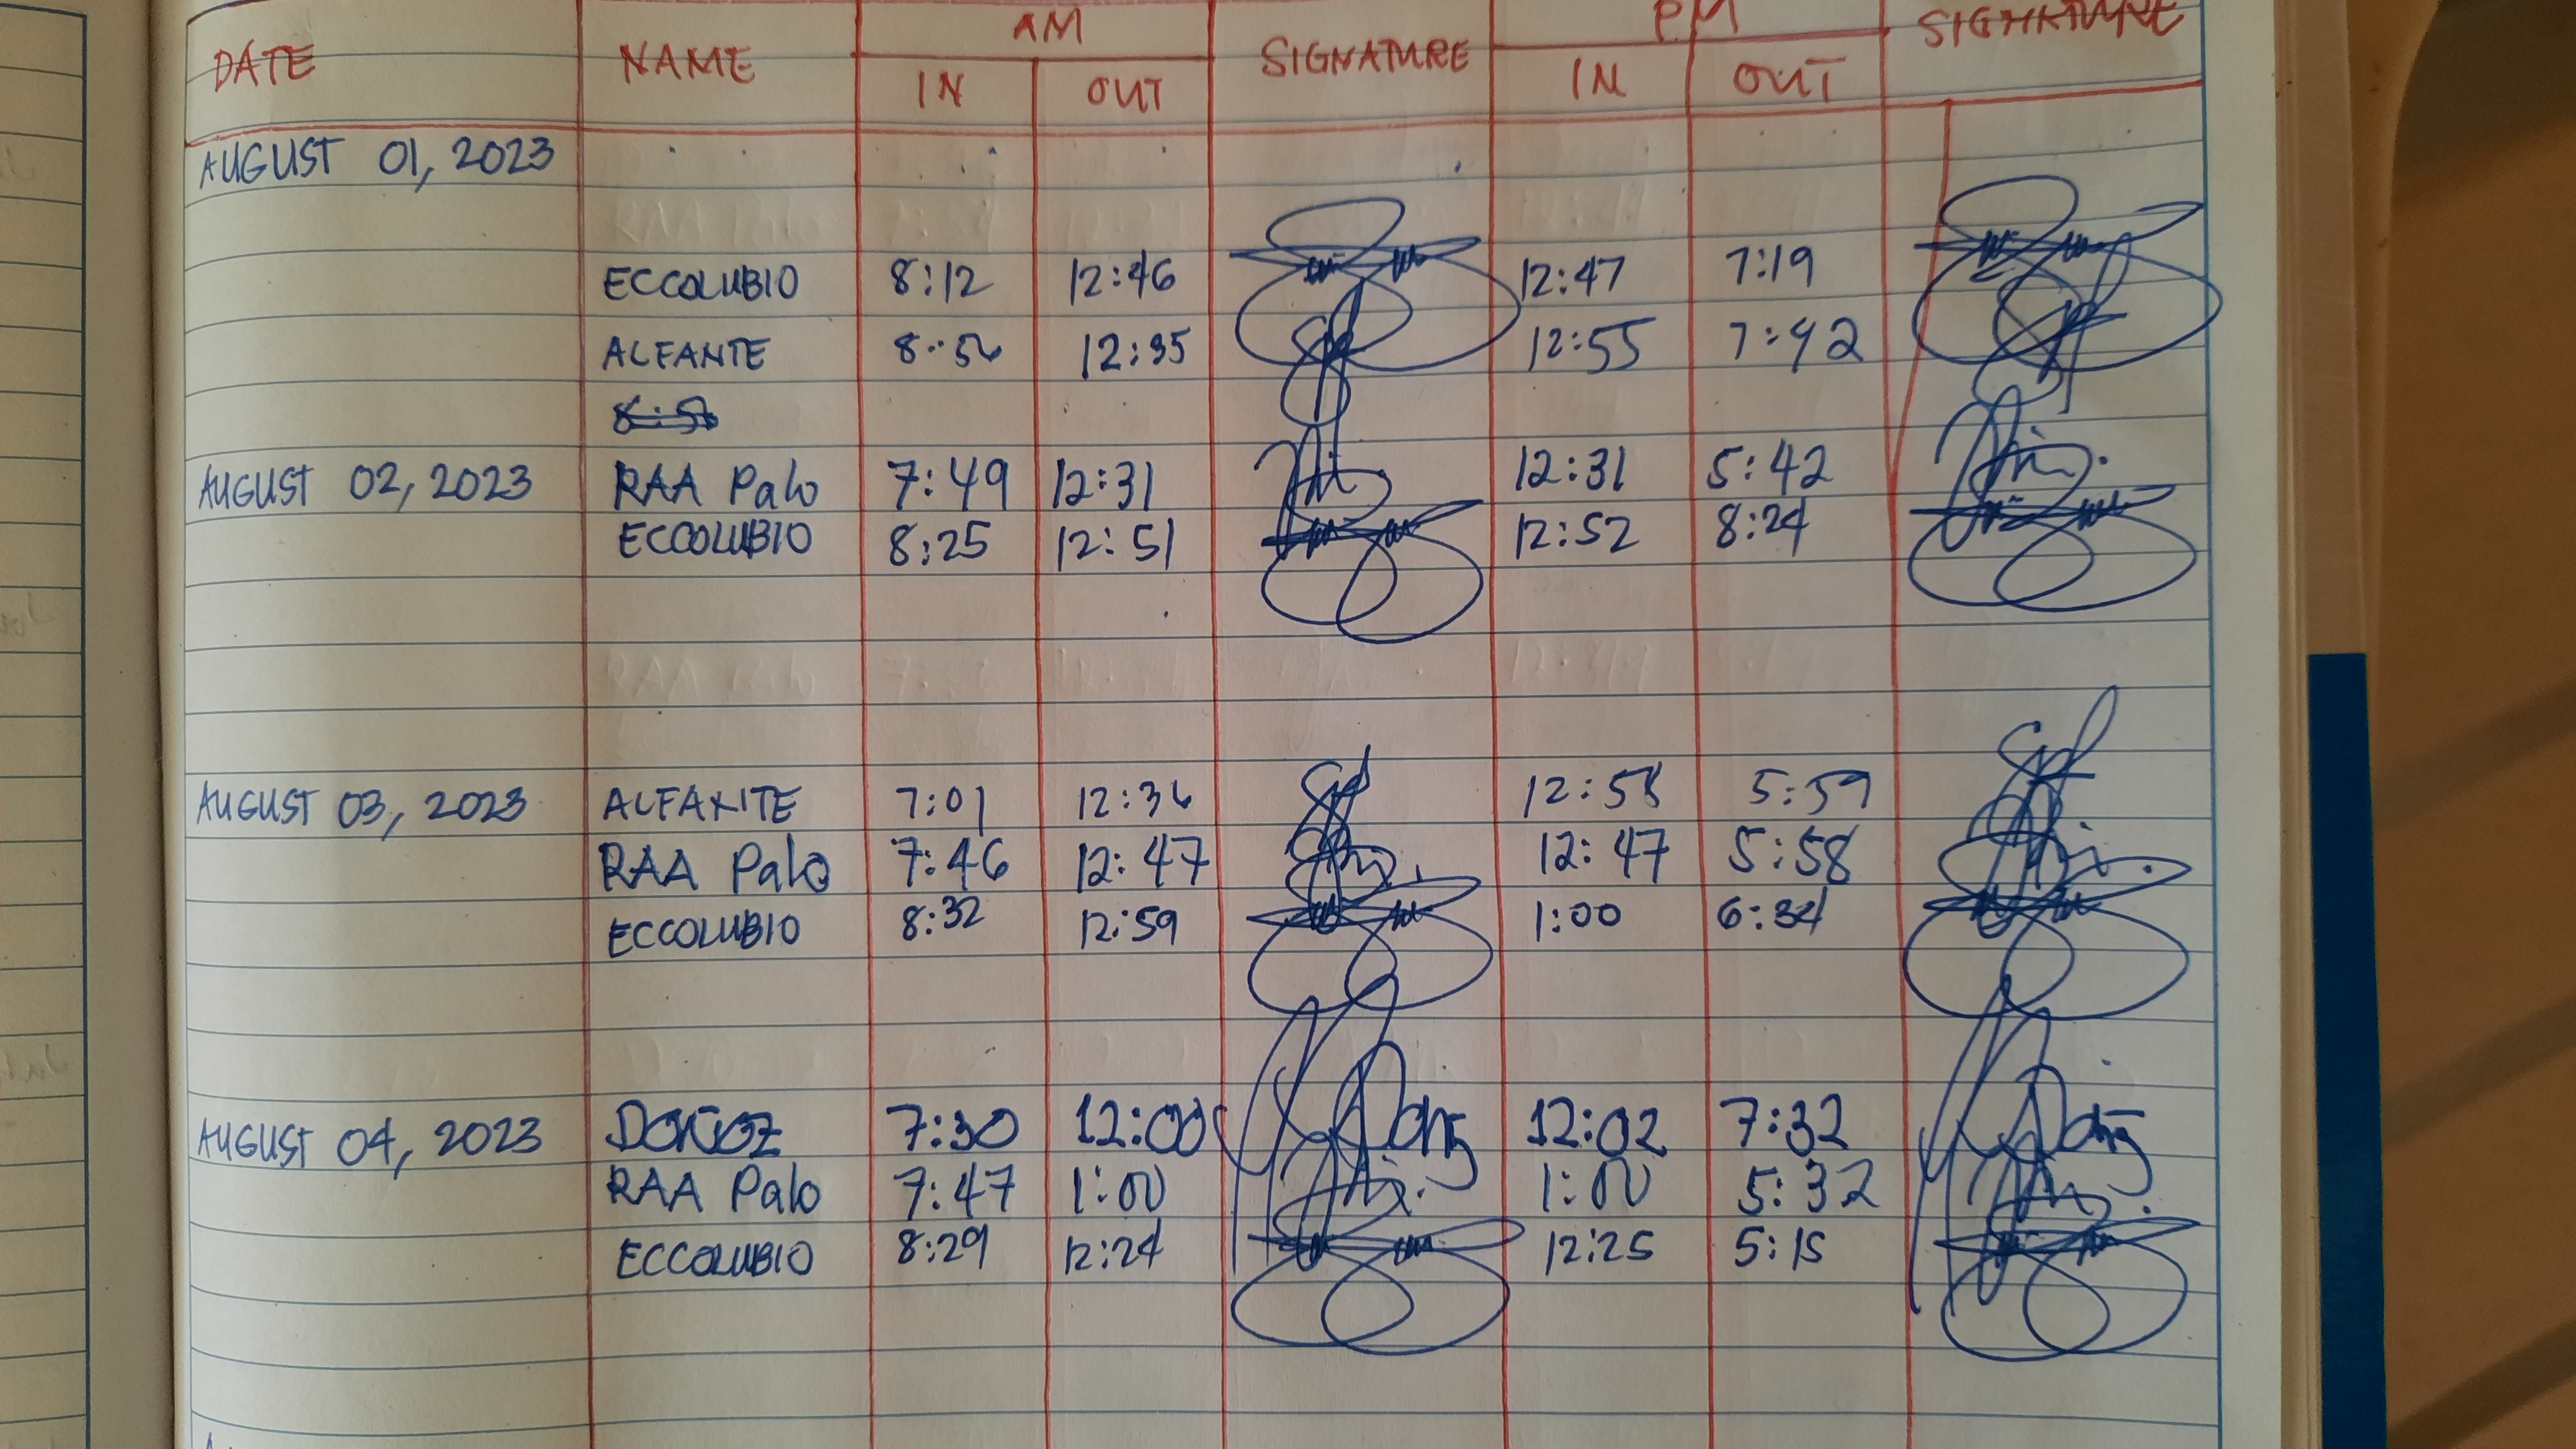 DATE NAME AM SIGNATURE PM SIGNATURE
IN OUT IN OUT
AUGUST 01, 2023
ECCOLUBIO 8:12 12:46 12:47 7:19
ALFANTE 12:35 12:55 7:42
AUGUST 02, 2023 RAA Palo 7:49 12:31 12:31 5:42
ECCOLUBIO 8:25 12:51 12:52 8:24
AUGUST 03, 2023 ALFANTE 7:01 12:36 12:58 5:59
RAA Palo 7:46 12:47 12:47 5:58
ECCOLUBIO 8:32 12:59 1:00 6:34
AUGUST 04, 2023 7:30 12:00 12:02 7:32
RAA Palo 7:47 1:00 1:00 5:32
ECCOLUBIO 8:29 12:24 12:25 5:15